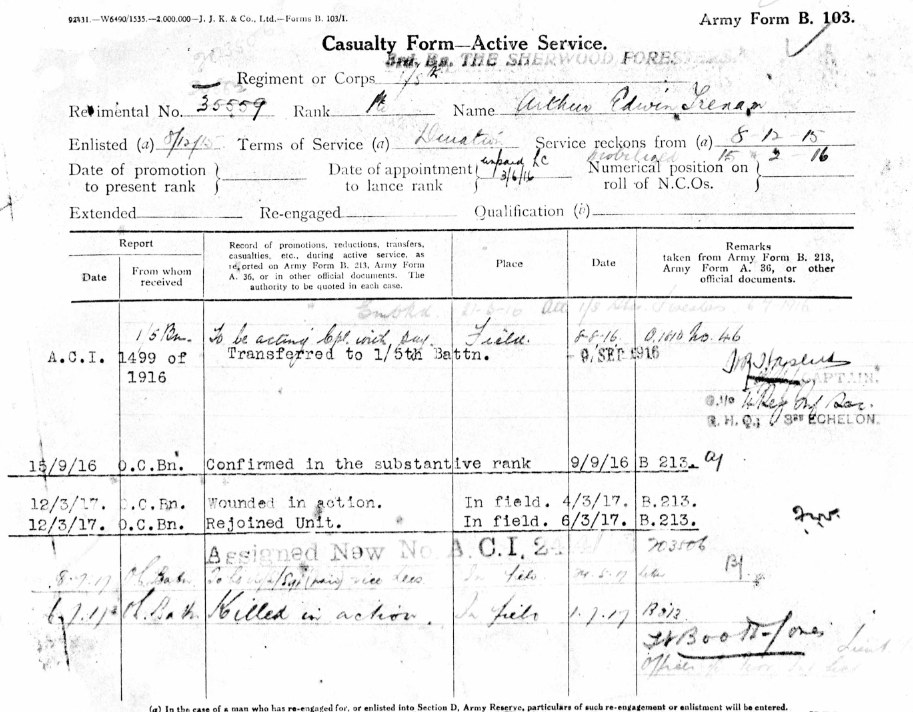 92431.—W6490/1535.—2,000,000—J. J. K. & Co., Ltd.—Forms B. 103/1.
Army Form B. 103.
Casualty Form—Active Service.
THE SHERWOOD FORESTERS
Regiment or Corps 1/5th
Regimental No. 35559 Rank Pte Name Arthur Edwin
Enlisted (a) 8/12/15 Terms of Service (a) Duration Service reckons from (a) 8-12-15
Mobilized 15 2 16
Date of promotion to present rank } Date of appointment to lance rank } unpaid LC 3/6/16 Numerical position on roll of N.C.Os. }
Extended Re-engaged Qualification (b)
Report
Date
From whom received
Record of promotions, reductions, transfers, casualties, etc., during active service, as reported on Army Form B. 213, Army Form A. 36, or in other official documents. The authority to be quoted in each case.
Place
Date
Remarks taken from Army Form B. 213, Army Form A. 36, or other official documents.
1/5 Bn. To be acting Cpl. with pay. Field. 8-8-16. O.1810 No. 46
A.C.I. 1499 of 1916 Transferred to 1/5th Battn. -9 SEP 1916
CAPTAIN.
R. H. Q. 3RD ECHELON.
15/9/16 O.C.Bn. Confirmed in the substantive rank 9/9/16 B 213.
12/3/17. O.C.Bn. Wounded in action. In field. 4/3/17. B.213.
12/3/17. O.C.Bn. Rejoined Unit. In field. 6/3/17. B.213.
Assigned New No. A.C.I. 24 203506
8-7-17 OC Battn In field
6-7-17 OC Battn Killed in action. In field 1-7-17 B213
Boott-Jones Lieut
(a) In the case of a man who has re-engaged for, or enlisted into Section D, Army Reserve, particulars of such re-engagement or enlistment will be entered.